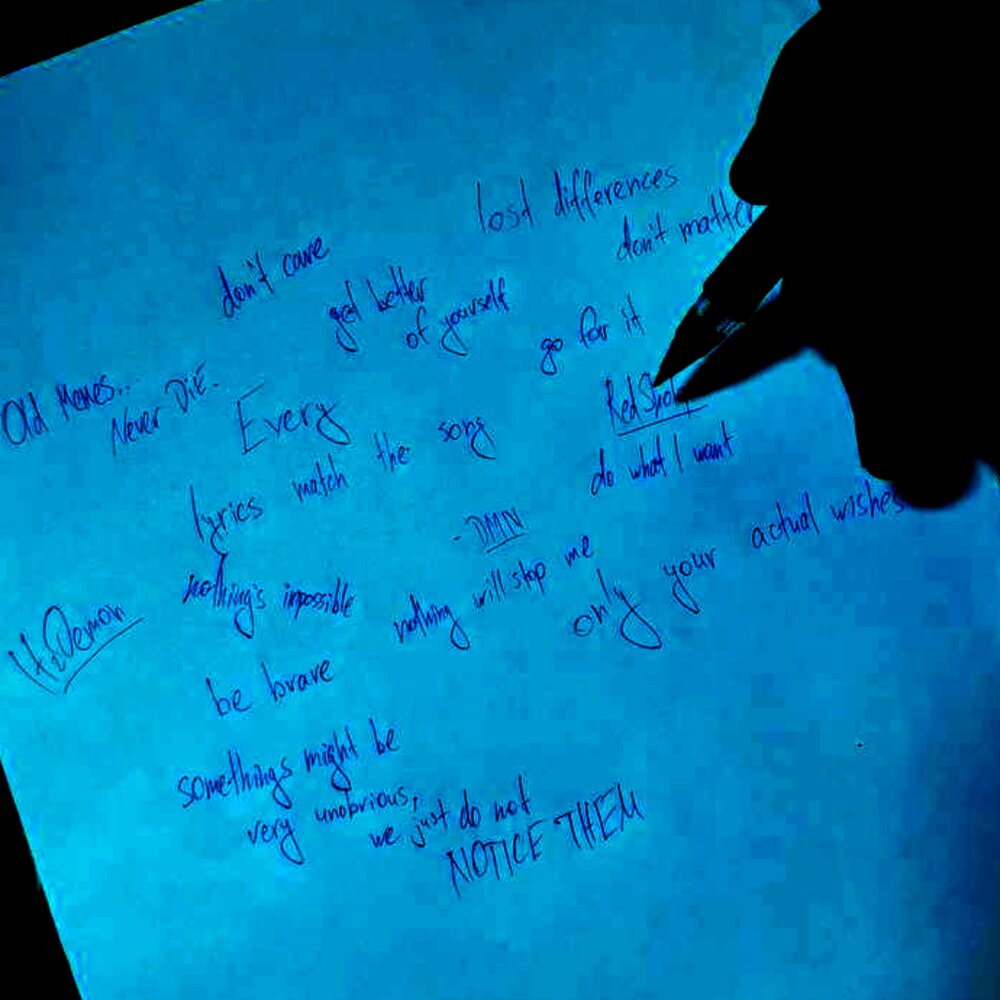 lost differences
don't matter
don't care
get better
of yourself
go for it
Old Memes...
Never DiE.
Every
lyrics match the song
do what I want
- DMN
nothing's impossible
nothing will stop me
only your actual wishes
be brave
somethings might be
very unobvious,
we just do not
NOTICE THEM